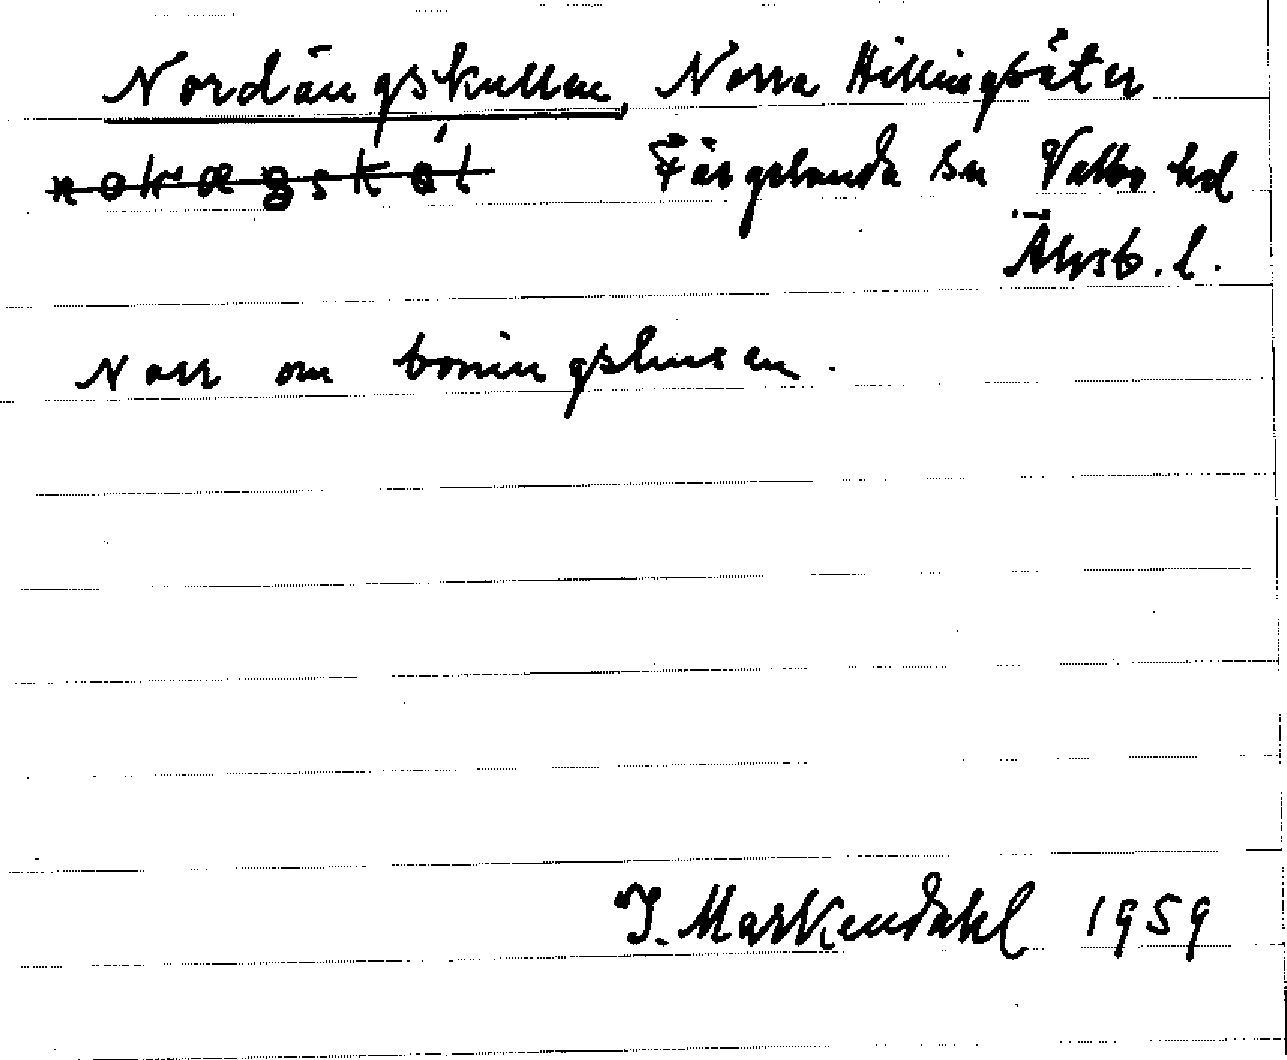 Nordängskullen, Norra Hillingsäter
Färgelanda sn Valbo hd
Älvsb. l.
Norr om boningshusen.
J. Markendahl 1959